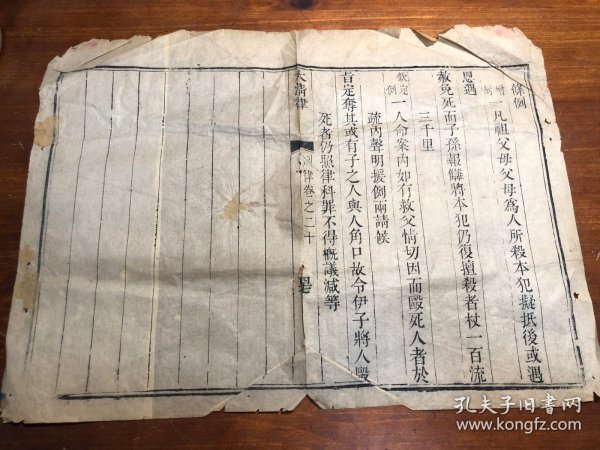 條例
增例一凡祖父母父母爲人所殺本犯擬抵後或遇
恩遇
赦免死而子孫報讎將本犯仍復擅殺者杖一百流
三千里
欽定例一人命案內如有救父情切因而毆死人者於
疏內聲明援例兩請候
旨定奪其或有子之人與人角口故令伊子將人毆
死者仍照律科罪不得槪議減等
大淸律
刑律卷之二十
孔夫子旧书网
www.kongfz.com